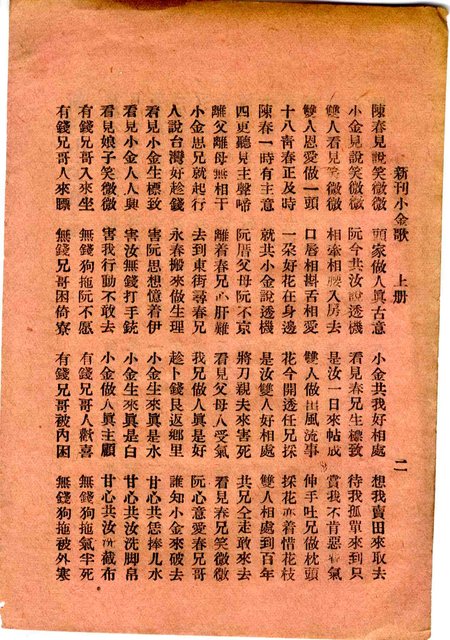 新刊小金歌　上册　二
陳春見說笑微微　頭家做人眞古意　小金共我好相處　想我賣田來取去
小金見說笑微微　阮今共汝說透機　看見春兄生標致　待我孤單來到只
雙人看見笑微微　相牽相腰入房去　是汝一日來帖成　賞我不肯惡氣
雙人恩愛做一頭　口唇相斟舌相愛　雙人做出風流事　伸手吐兄做枕頭
十八靑春正及時　一朶好花在身邊　花今開透任兄採　採花亦着惜花枝
陳春一時有主意　就共小金說透機　是汝雙人好相處　雙人相處到百年
四更聽見主聲啼　阮厝父母阮不京　將刀親夫來害死　共兄仝走敢來去
離父離母無相干　離着春兄心肝難　看見父母人受氣　看見春兄笑微微
小金思兄就起行　去到東街尋春兄　我兄做人眞是好　阮心意愛春兄哥
人說台灣好趁錢　永春搬來做生理　趁卜錢艮返鄕里　誰知小金來破去
看見小金生標致　害阮思想憶着伊　小金生來眞是水　甘心共恁捧儿水
看見小金人人興　害汝無錢打手銃　小金生來眞是白　甘心共汝洗脚帛
看見娘子笑微微　害我行動不敢去　小金做人眞主顧　甘心共汝洗截布
有錢兄哥入來坐　無錢狗拖阮不愿　有錢兄哥人歡喜　無錢狗拖氣半死
有錢兄哥人來嫖　無錢兄哥困倚寮　有錢兄哥被內困　無錢狗拖被外寒